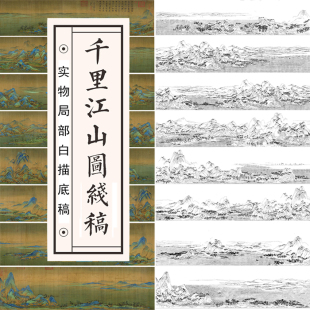 千里江山圖綫稿
◎实物局部白描底稿◎